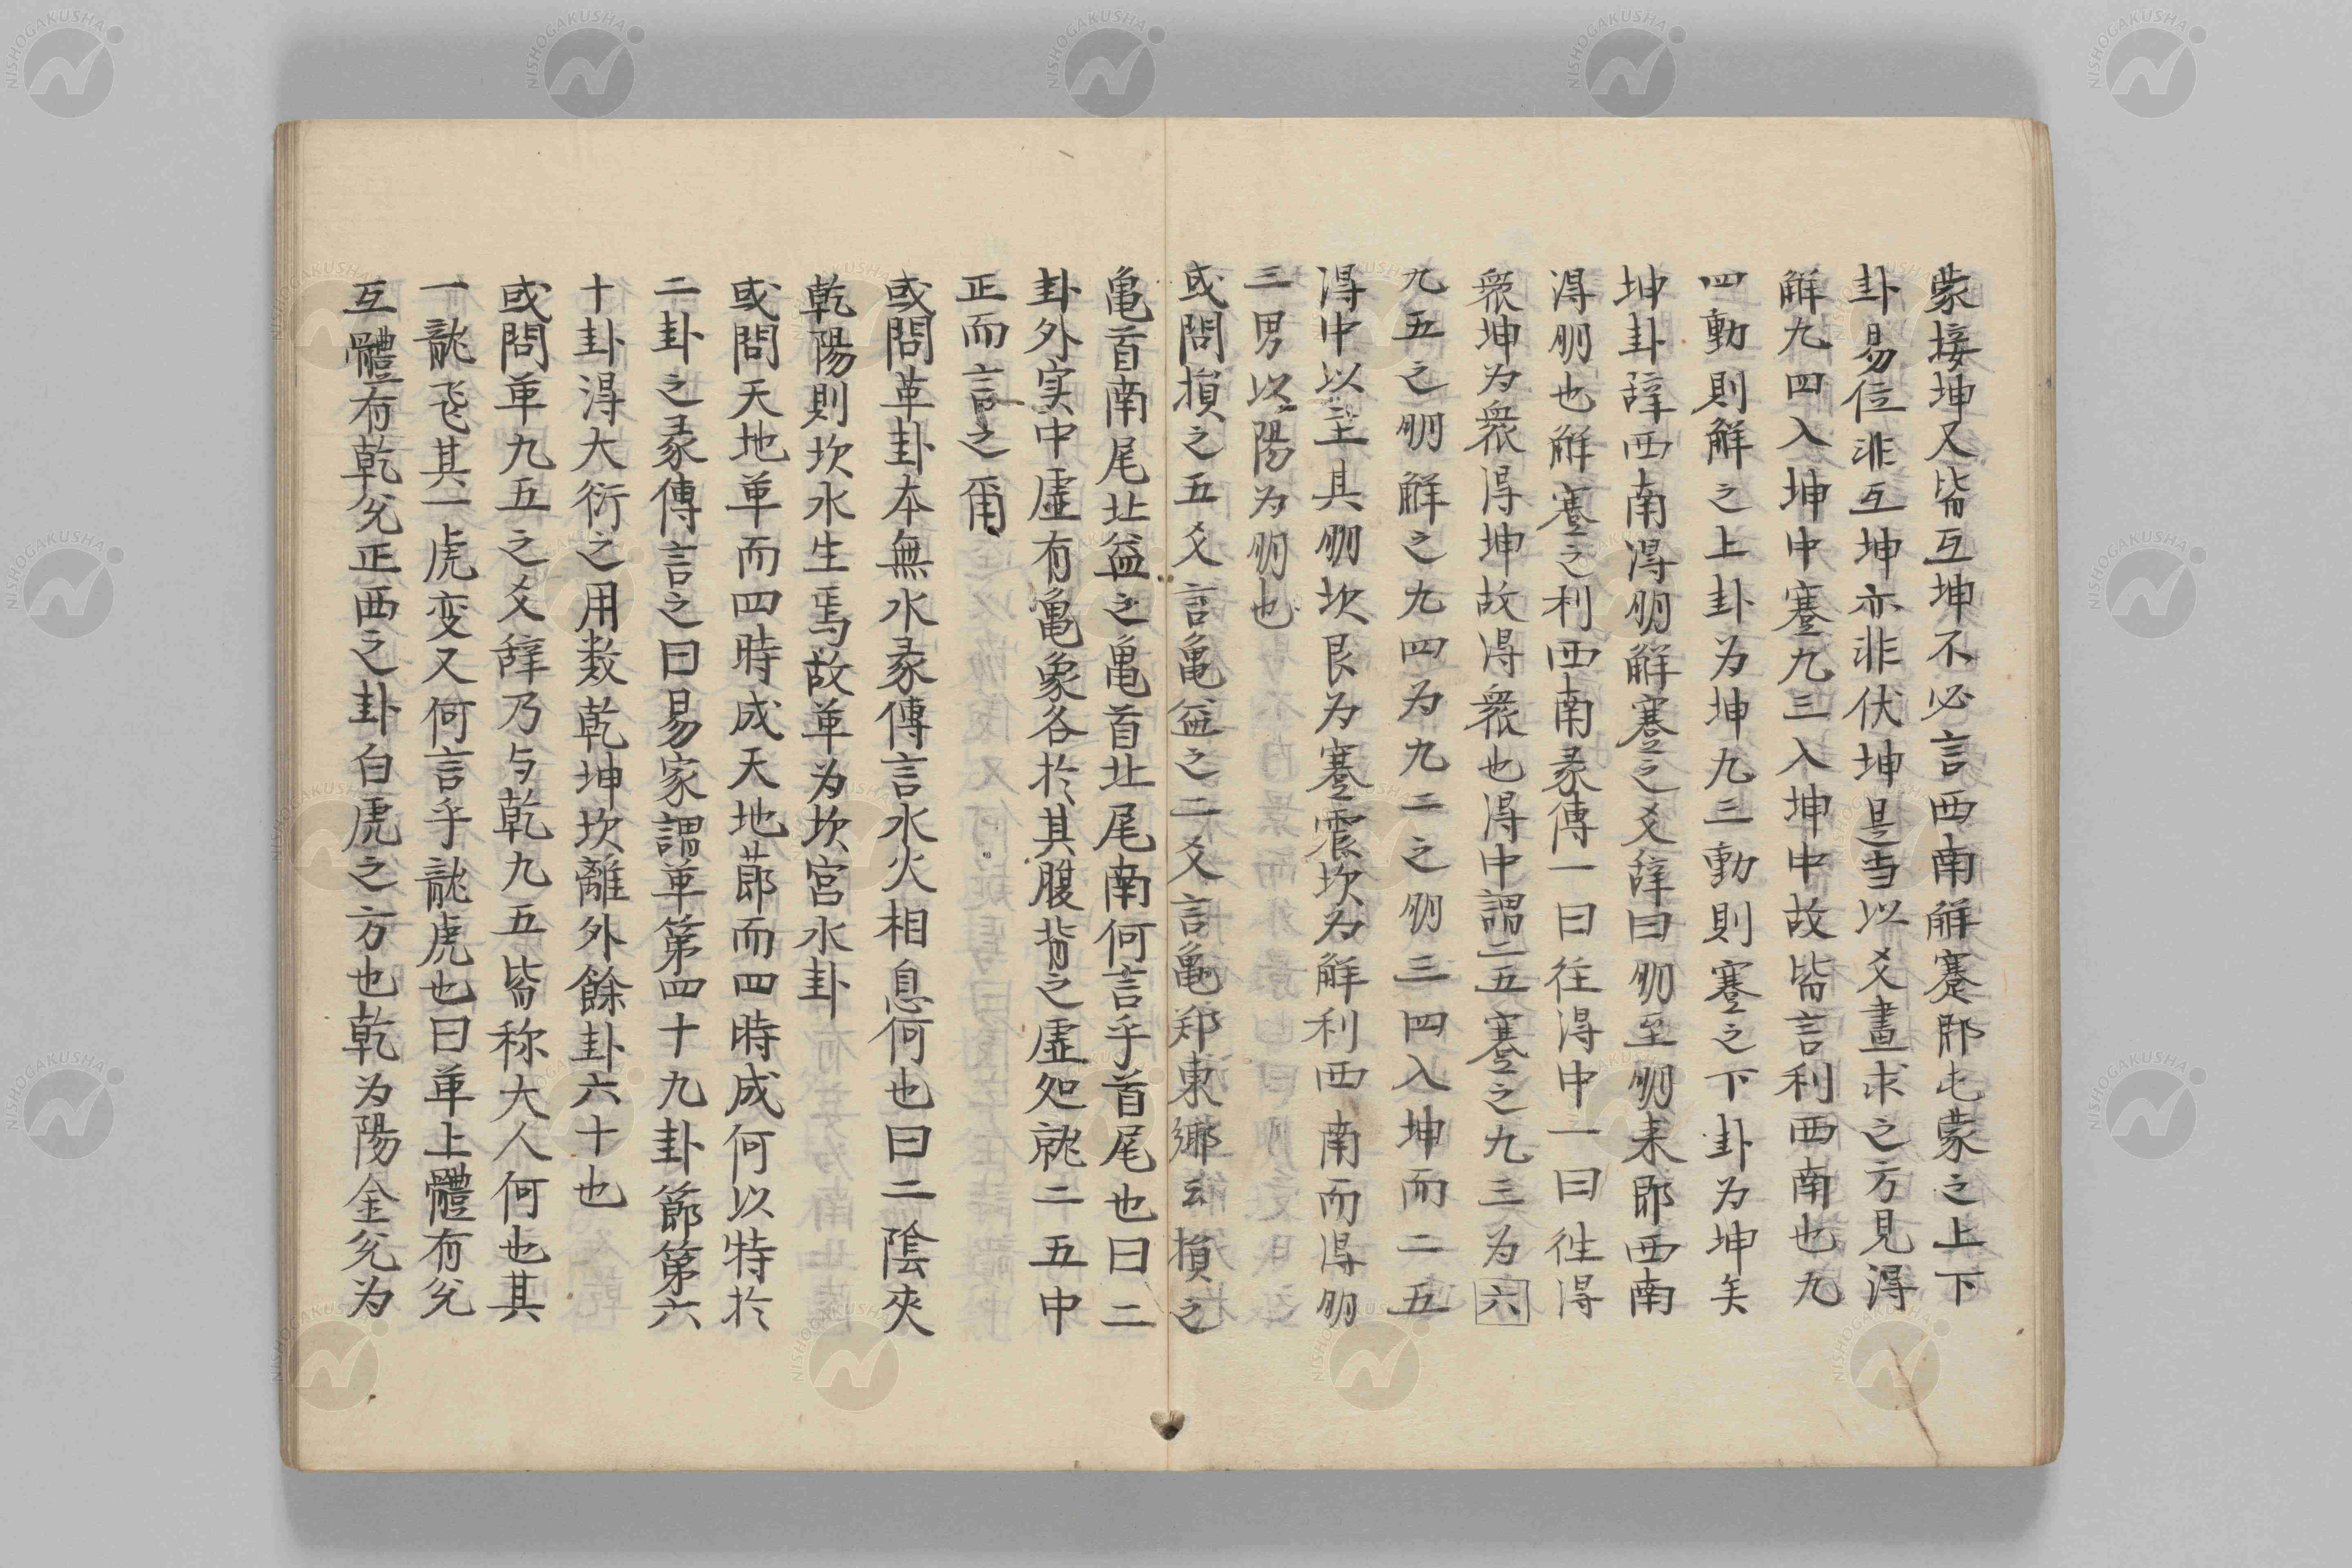 蒙接坤又皆互坤不必言西南解蹇郎屯蒙之上下
卦易位非互坤亦非伏坤是当以爻畫求之方見得
解九四入坤中蹇九三入坤中故皆言利西南也九
四動則解之上卦为坤九三動則蹇之下卦为坤矣
坤卦辞西南得朋解蹇之爻辞曰朋至朋来郎西南
得朋也解蹇之利西南彖傳一曰往得中一曰往得
衆坤为衆得坤故得衆也得中謂二五蹇之九三为六
九五之朋解之九四为九二之朋三四入坤而二五
得中以主其朋坎艮为蹇震坎为解利西南而得朋
三男以陽为朋也
或問損之五爻言亀益之二爻言亀郑東郷云損之
亀首南尾北益之亀首北尾南何言乎首尾也曰二
卦外実中虚有亀象各於其腹背之虚処就二五中
正而言之爾
或問革卦本無水彖傳言水火相息何也曰二陰夾
乾陽則坎水生焉故革为坎宮水卦
或問天地革而四時成天地莭而四時成何以特於
二卦之彖傳言之曰易家謂革第四十九卦節第六
十卦得大衍之用数乾坤坎離外餘卦六十也
或問革九五之爻辞乃与乾九五皆称大人何也其
一龍飛其一虎変又何言乎龍虎也曰革上體有兊
互體有乾兊正西之卦白虎之方也乾为陽金兊为
NISHOGAKUSHA